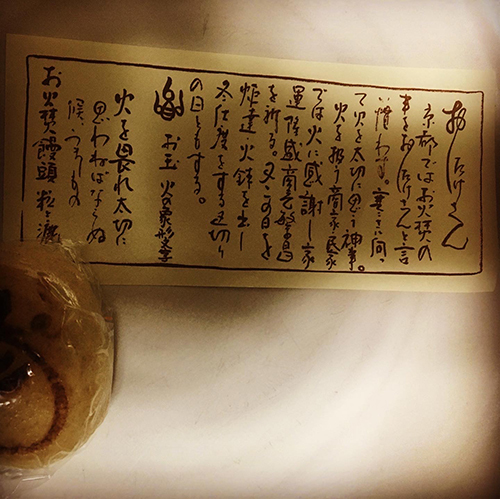 おしたけさん
京都ではお火焚の
事をおしたけさんと言
い慣わす。寒さに向っ
て火を大切に思う神事。
火を扱う商家、民家
では火に感謝し家
運隆盛商売繁昌
を祈る。又、この日を
炬燵、火鉢を出し
冬仕度をする区切り
の日ともする。
お玉 火の象形文字
火を畏れ太切に
思わねばならぬ
候、
お火焚饅頭 粒と漉